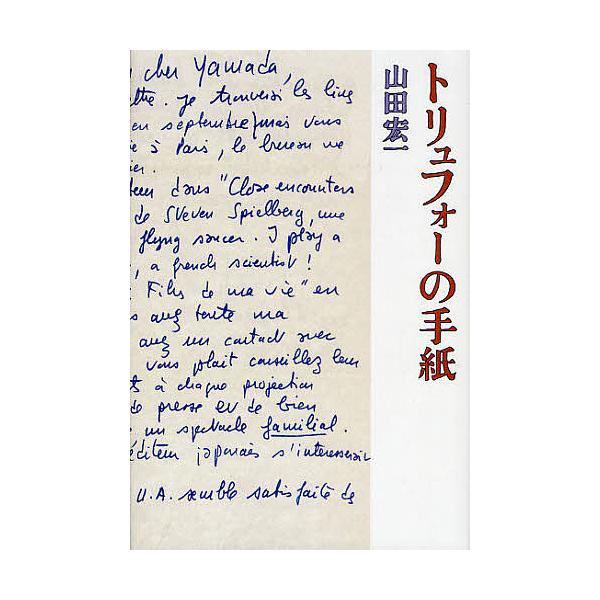 トリュフォーの手紙
山田宏一
cher Yamada,
ttre. je trouverai les livres
en septembre, mais vous
à Paris, le bureau ne
ier.
dans "Close encounters
de Steven Spielberg, une
flying saucer. I play a
, a french scientist!
Fille de ma vie" en
s aux tente ma
aux un contact avec
vous plait conseillez leur
ts à chaque projection
de presse et de bien
un spectacle familial.
éditeur japonais s'interesserait
U.A. semble satisfaite de